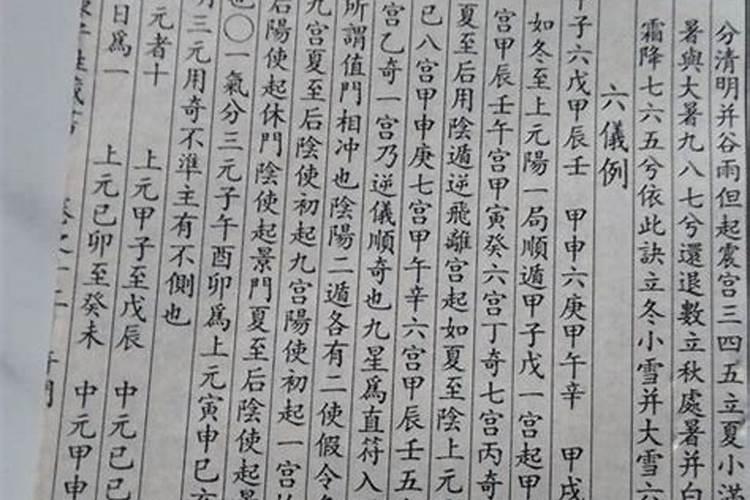 分清明并谷雨但起震宮三四五立夏小滿
暑與大暑九八七兮還退數立秋處暑并白
霜降七六五兮依此訣立冬小雪并大雪六
六儀例
子六戊甲辰壬 甲申六庚甲午辛 甲戌
如冬至上元陽一局順遁甲子戊一宮起甲
宮甲辰壬午宮甲寅癸六宮丁奇七宮丙奇
夏至后用陰遁逆飛離宮起如夏至陰上元
己八宮甲申庚七宮甲午辛六宮甲辰壬五
宮乙奇一宮乃逆儀順奇也九星為直符入
所謂值門相冲也陰陽二遁各有二使假令
九宮夏至后陰使初起九宮陽使初起一宮
后陽使起休門陰使起景門夏至后陰使起景
也〇一氣分三元子午酉卯為上元寅申巳亥
三元用奇不準主有不側也
元者十 上元甲子至戊辰 中元己巳
日為一 上元己卯至癸未 中元甲申